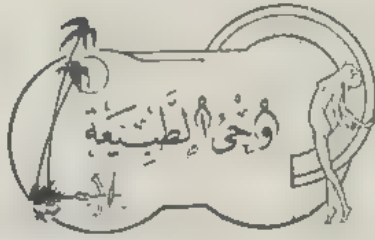 وَحْيُ الطَّبِيْعَةِ